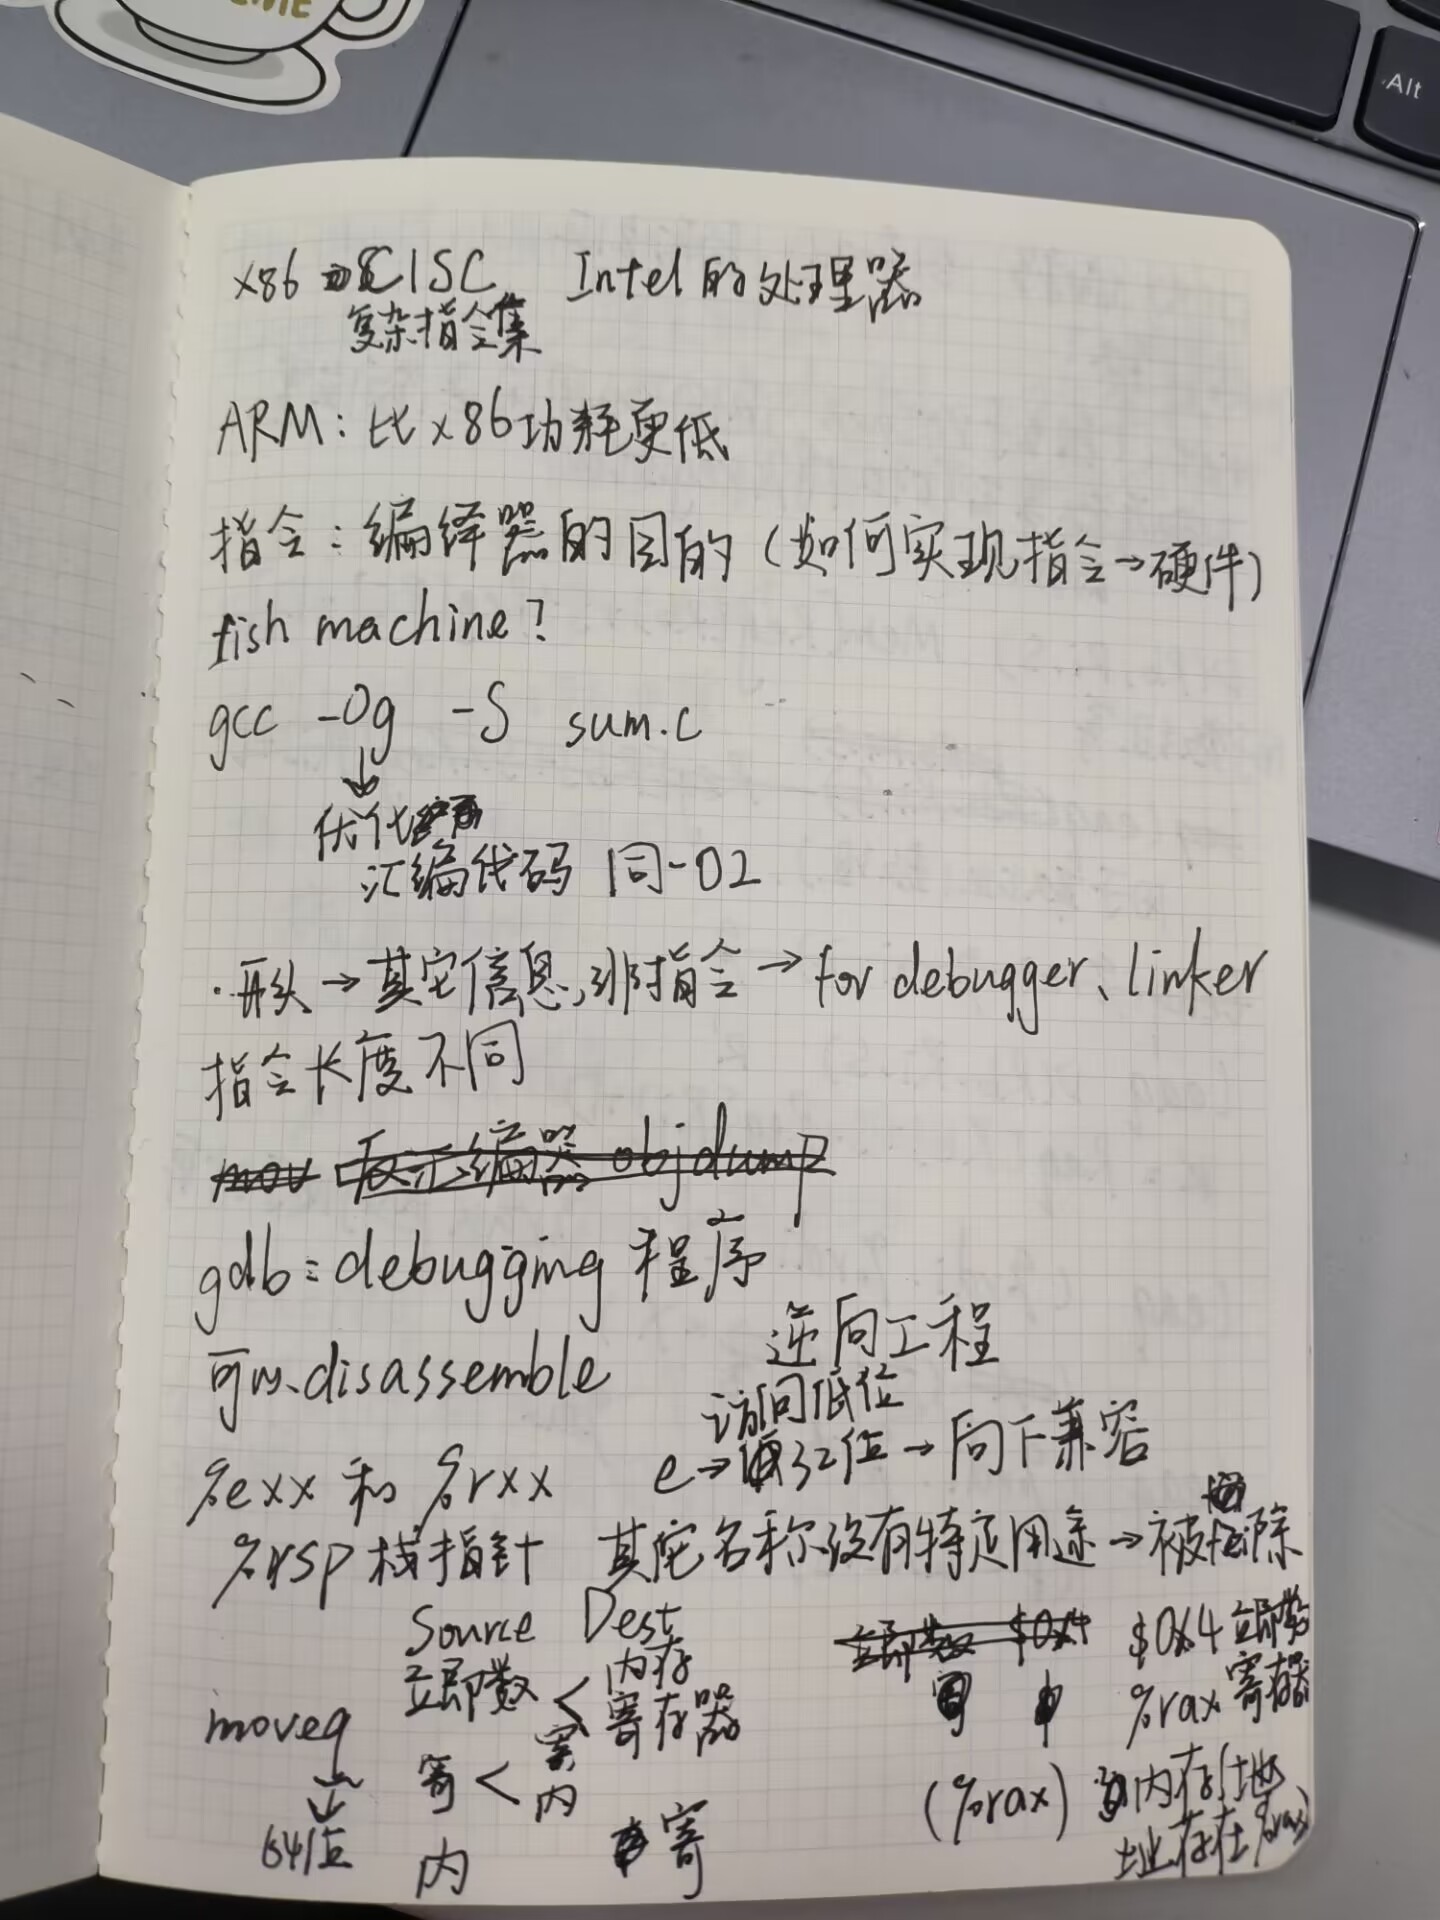 Alt
x86 CISC Intel的处理器
复杂指令集
ARM: 比x86功耗更低
指令: 编译器的目的 (如何实现指令→硬件)
fish machine?
gcc -Og -S sum.c
↓
优化
汇编代码 同-O2
.开头→其它信息,非指令→for debugger、linker
指令长度不同
mov 反汇编器 objdump
gdb: debugging 程序
可以disassemble
逆向工程
访问低位
%exx 和 %rxx e→低32位→向下兼容
%rsp 栈指针 其它名称没有特定用途→被 除
Source Dest
立即数 < 内存
寄存器
立即数 $0x4
$0x4 立即数
%rax 寄存器
moveq
↓
64位
寄 < 寄
内
内 寄
(%rax) 内存(地
址存在%rax)